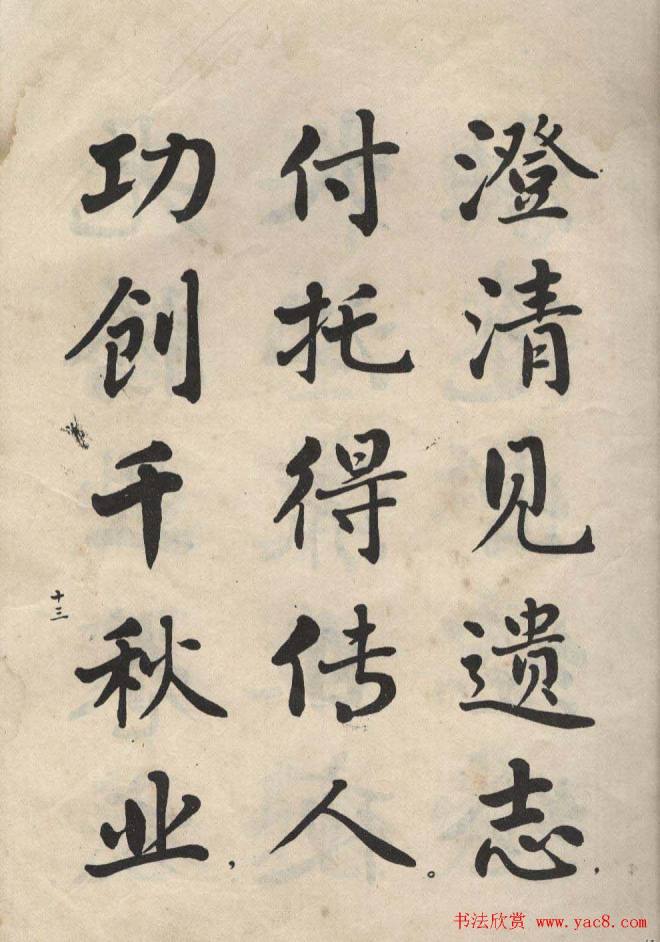 澄清见遗志,
付托得传人。
功创千秋业,
十三
书法欣赏 www.yac8.com